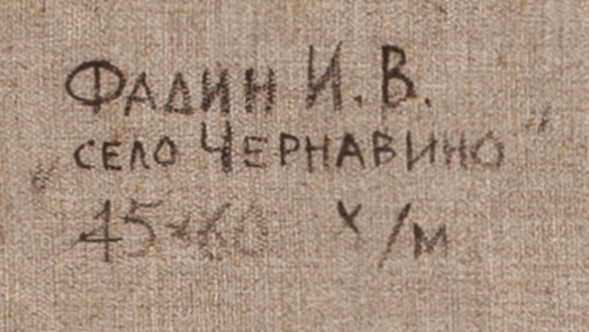 ФАДИН И.В.
„СЕЛО ЧЕРНАВИНО"
45×60 х/м